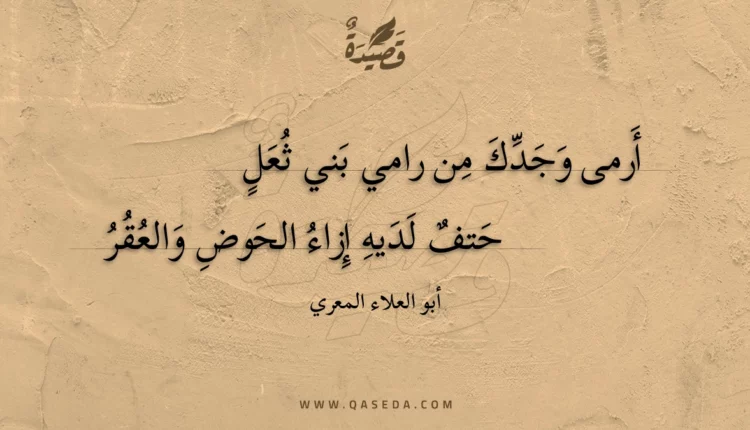 قَصِيْدَةٌ
أَرمى وَجَدِّكَ مِن رامي بَني ثُعَلٍ
حَتفٌ لَدَيهِ إِزاءُ الحَوضِ وَالعُقُرُ
أبو العلاء المعري
WWW.QASEDA.COM